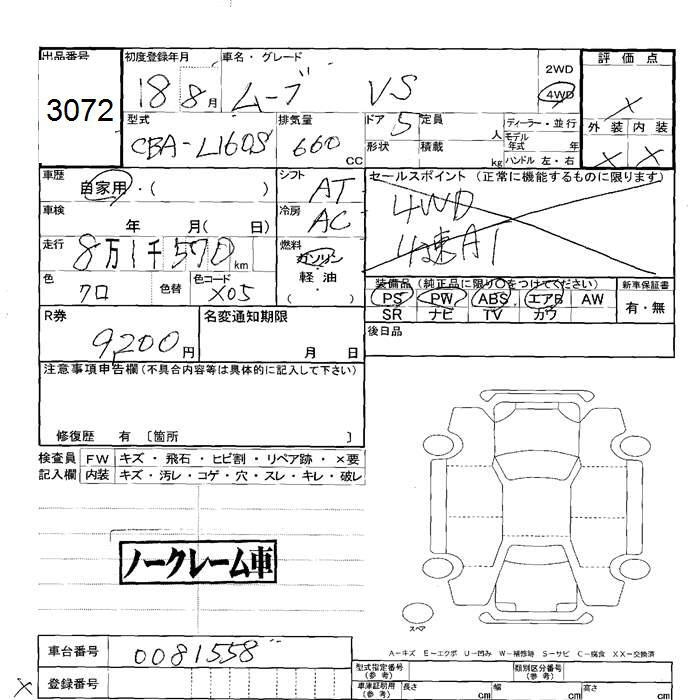 出品番号 初度登録年月 車名・グレード 2WD 評価点
3072 18 8月 ムーブ VS 4WD ×
型式 排気量 ドア 定員 ディーラー・並行 外装 内装
CBA-L160S 660 CC 5 人 モデル年式 年 × ×
形状 積載 kg ハンドル 左・右
車歴 シフト セールスポイント (正常に機能するものに限ります)
自家用・( ) AT 4WD
車検 冷房
年 月( 日) AC 4速AT
走行 燃料
8万1千570km ガソリン
色 色替 色コード 軽油 装備品(純正品に限り〇をつけてください) 新車保証書
クロ X05 ( ) PS PW ABS エアB AW 有・無
R券 名変通知期限 SR ナビ TV カワ
9,200円 月 日 後日品
注意事項申告欄(不具合内容等は具体的に記入して下さい)
修復歴 有 〔箇所 〕
検査員 FW キズ・飛石・ヒビ割・リペア跡・×要
記入欄 内装 キズ・汚レ・コゲ・穴・スレ・キレ・破レ
ノークレーム車
スペア
A−キズ E−エクボ U−凹み W−補修跡 S−サビ C−腐食 XX−交換済
車台番号 0081558 型式指定番号(参考) 類別区分番号(参考)
× 登録番号 車庫証明用(参考) 長さ cm 幅 cm 高さ cm